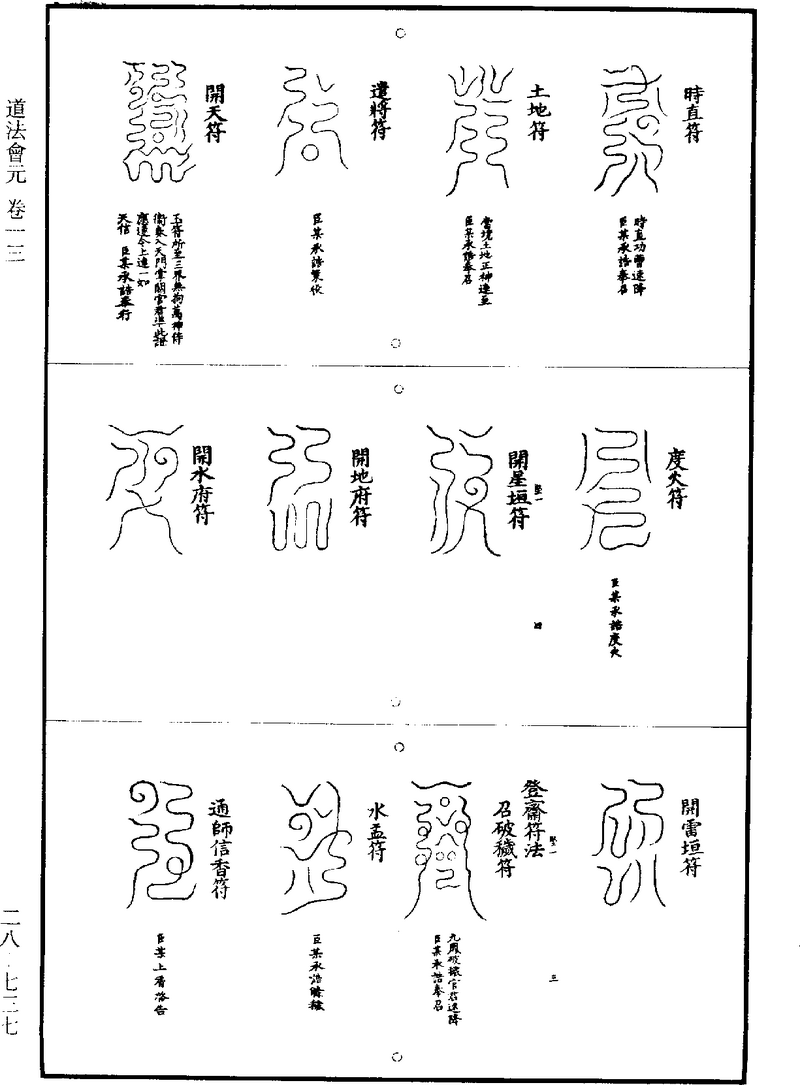 時直符
時直功曹速降
臣某承誥奉召
土地符
當境土地正神速至
臣某承誥奉召
遣將符
臣某承誥策役
開天符
玉符所至三界無拘萬神侍
衛奏入天門掌關官君準此誥
應速令上達一如
天信 臣某承誥奉行
度火符
臣某承誥度火
開星垣符
堅一
四
開地府符
開水府符
開雷垣符
堅一
三
登齋符法
召破穢符
九鳳破穢官君速降
臣某承誥奉召
水盂符
臣某承誥
通師信香符
臣某上香啓告
道法會元 卷一三
二八·七三七